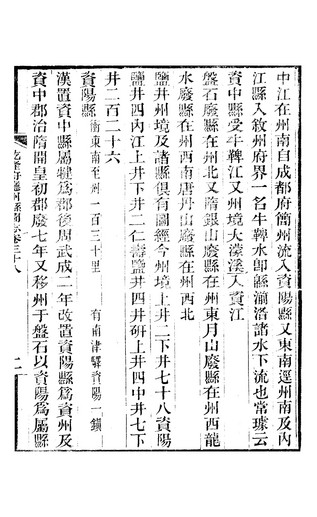 中江在州南自成都府簡州流入資陽縣又東南逕州南及內
江縣入敘州府界一名牛鞞水即緜湔洛諸水下流也常璩云
資中縣受牛鞞江又州境大濛溪入資江
盤石廢縣在州北又隋銀山廢縣在州東月山廢縣在州西龍
水廢縣在州西南唐丹山廢縣在州西北
鹽井州境及諸縣俱有圖經今州境上井二下井七十八資陽
鹽井四內江上井下井二仁壽鹽井四井研上井四中井七下
井二百二十六
資陽縣 衝東南至州一百三十里 有南津驛資陽一鎮
漢置資中縣屬犍爲郡後周武成二年改置資陽縣爲資州及
資中郡治隋開皇初郡廢七年又移州于盤石以資陽爲屬縣
卷三十八